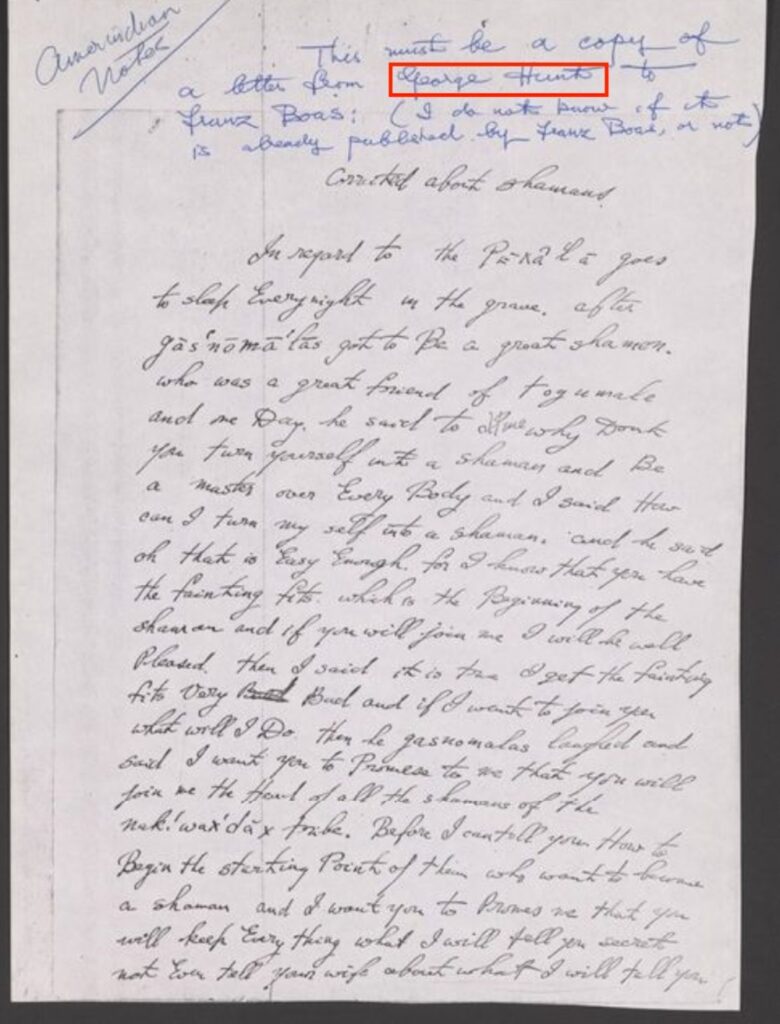 Amerindian
Notes
This must be a copy of
a letter from George Hunt to
Franz Boas: (I do not know if it
is already published by Franz Boas, or not)
Corrected about shamans.
In regard to the Pēxâ'lā goes
to sleep Every night in the grave. after
gās'nōmā'las got to Be a great shaman.
who was a great friend of Fogumale
and one Day. he said to me why Dont
you turn yourself into a shaman and Be
a master over Every Body and I said How
can I turn my self into a shaman. and he said
oh that is Easy Enough. for I know that you have
the fainting fits. which is the Beginning of the
shaman and if you will join me I will be well
Pleased. then I said it is true I get the fainting
fits Very Bad and if I want to join you
what will I Do. then he gasnomalas laughed and
said I want you to Promess to me that you will
join me the Head of all the shamans of the
nak!wax'dāx tribe. Before I can tell you How to
Begin the starting Point of them who want to become
a shaman and I want you to Promes me that you
will keep Every thing what I will tell you secret
not Even tell your wife about what I will tell you